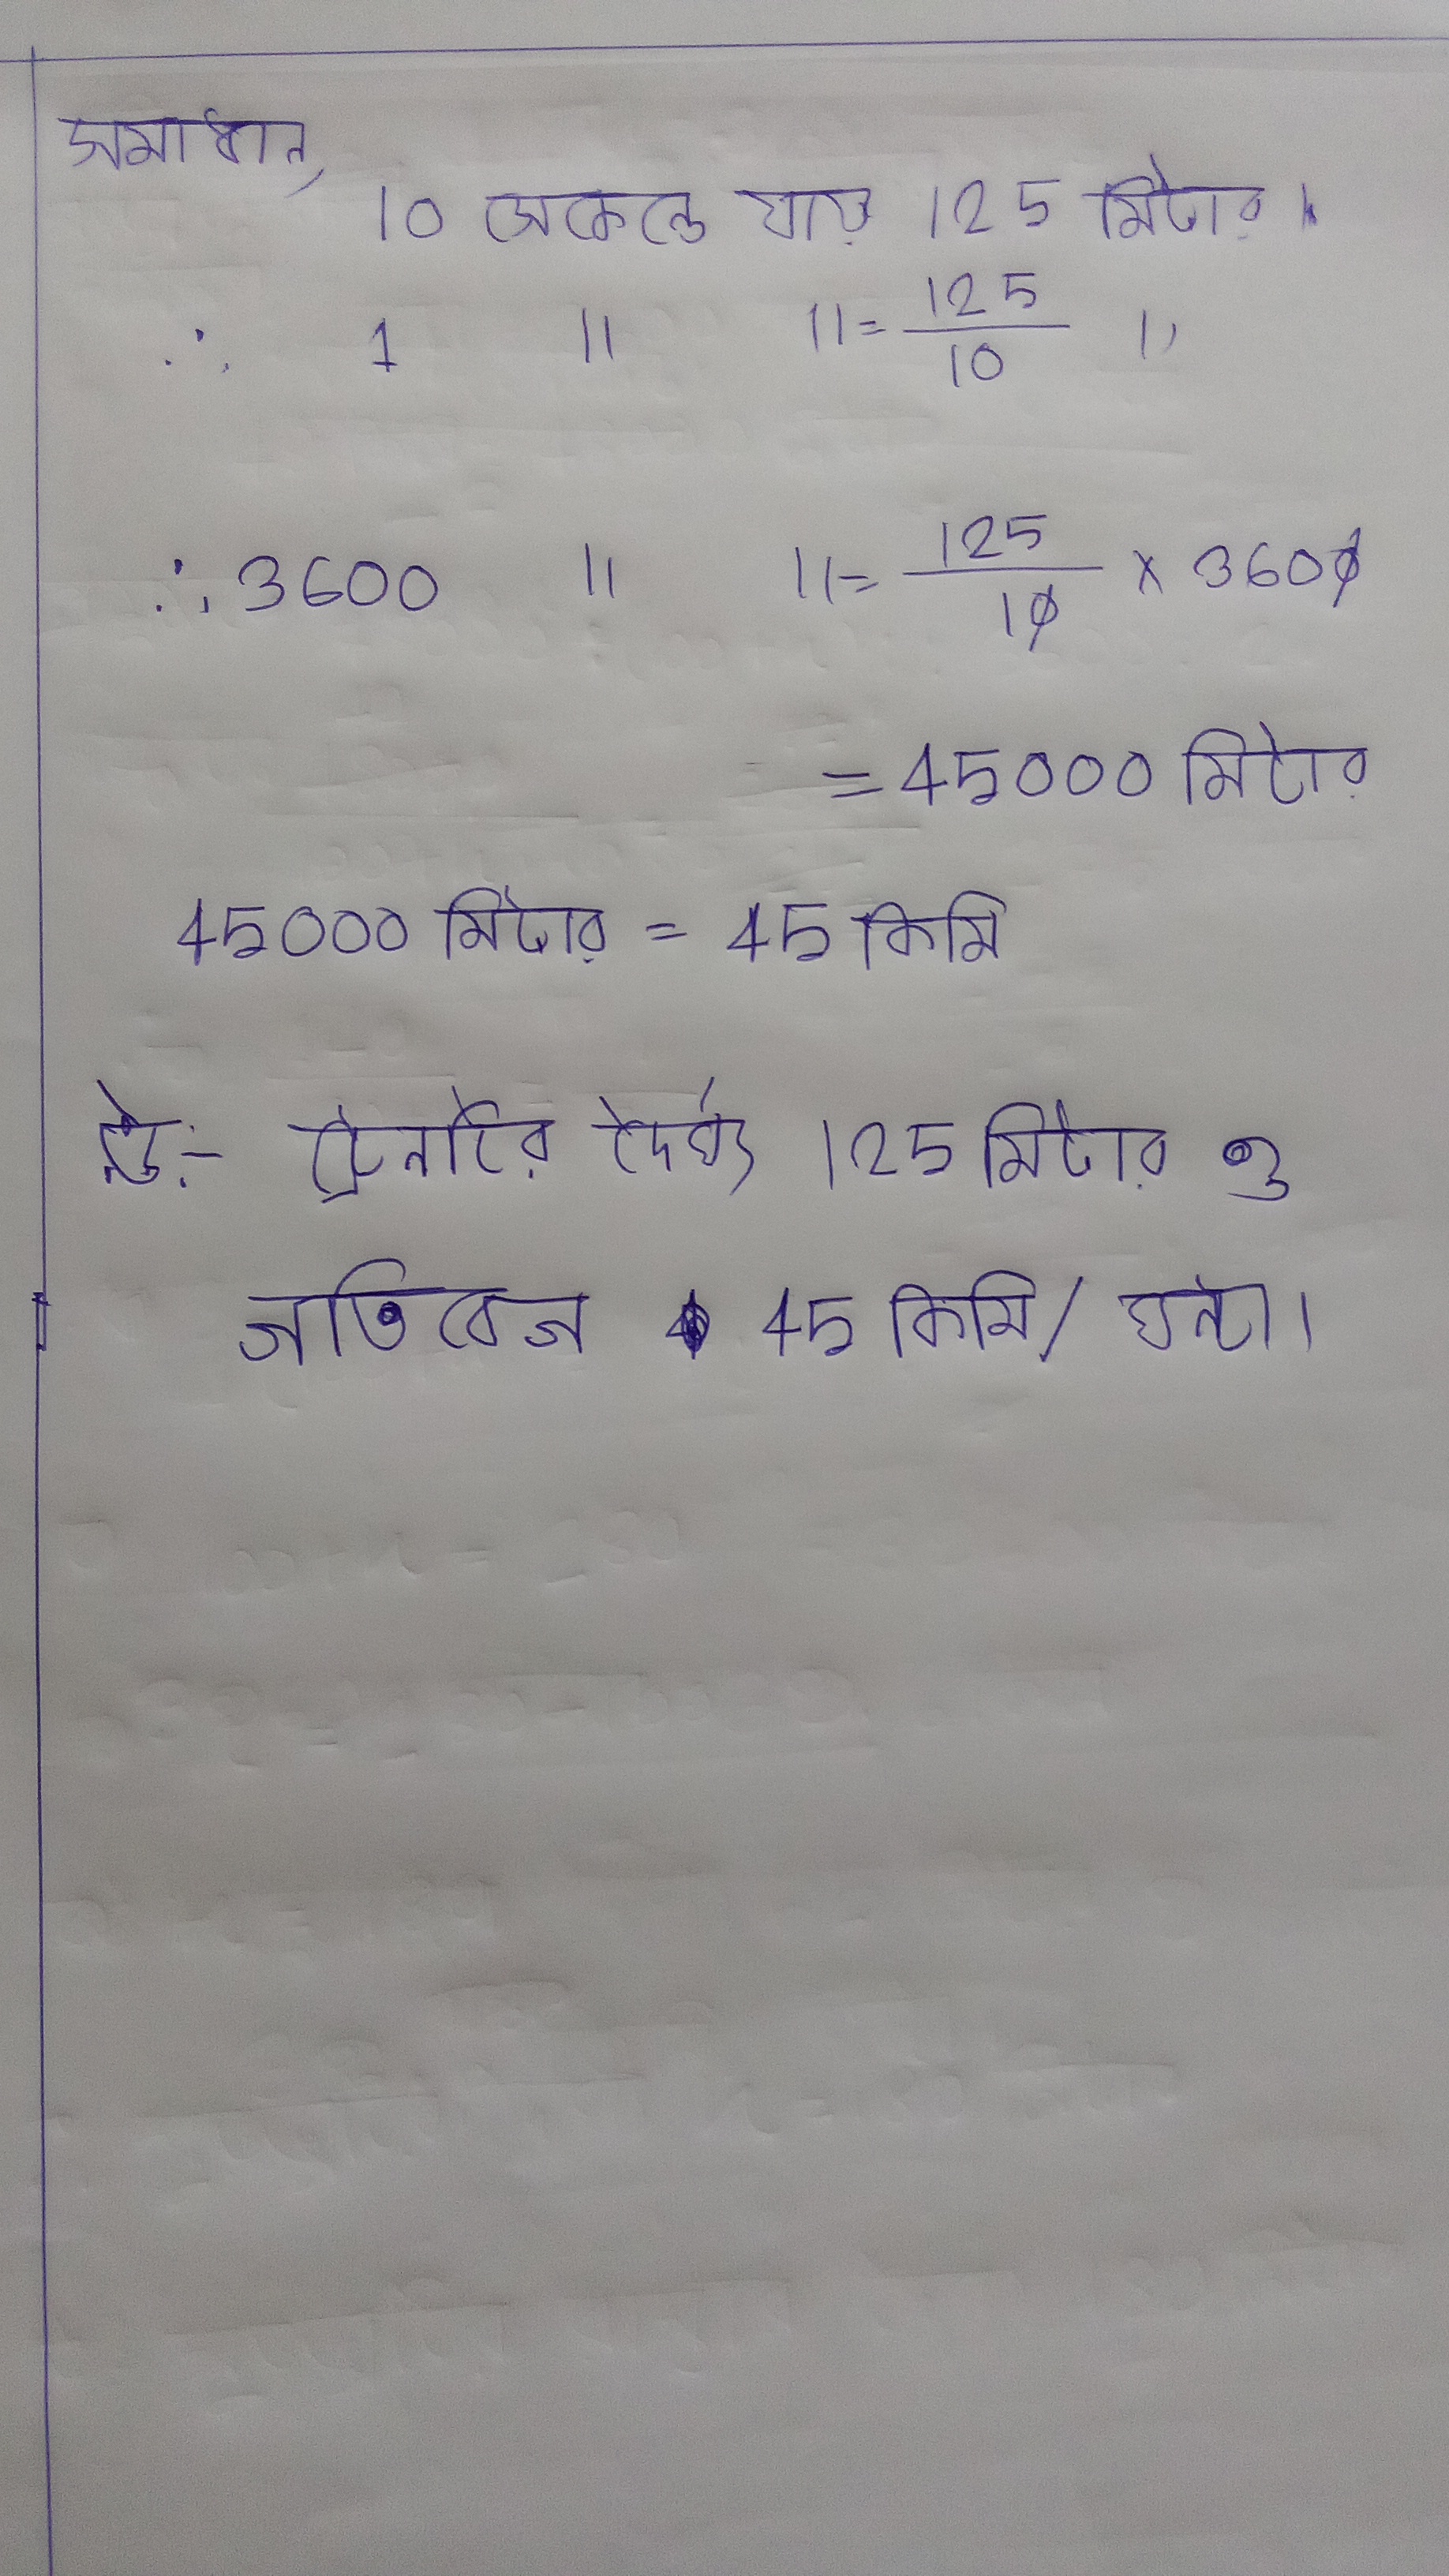 সমাধান,
10 সেকেন্ডে যায় 125 মিটার।
∴ 1 " " = 125/10 "
∴ 3600 " " = 125/10 × 3600
= 45000 মিটার
45000 মিটার = 45 কিমি
উ:- ট্রেনটির দৈর্ঘ্য 125 মিটার ও
গতিবেগ 45 কিমি/ ঘন্টা।